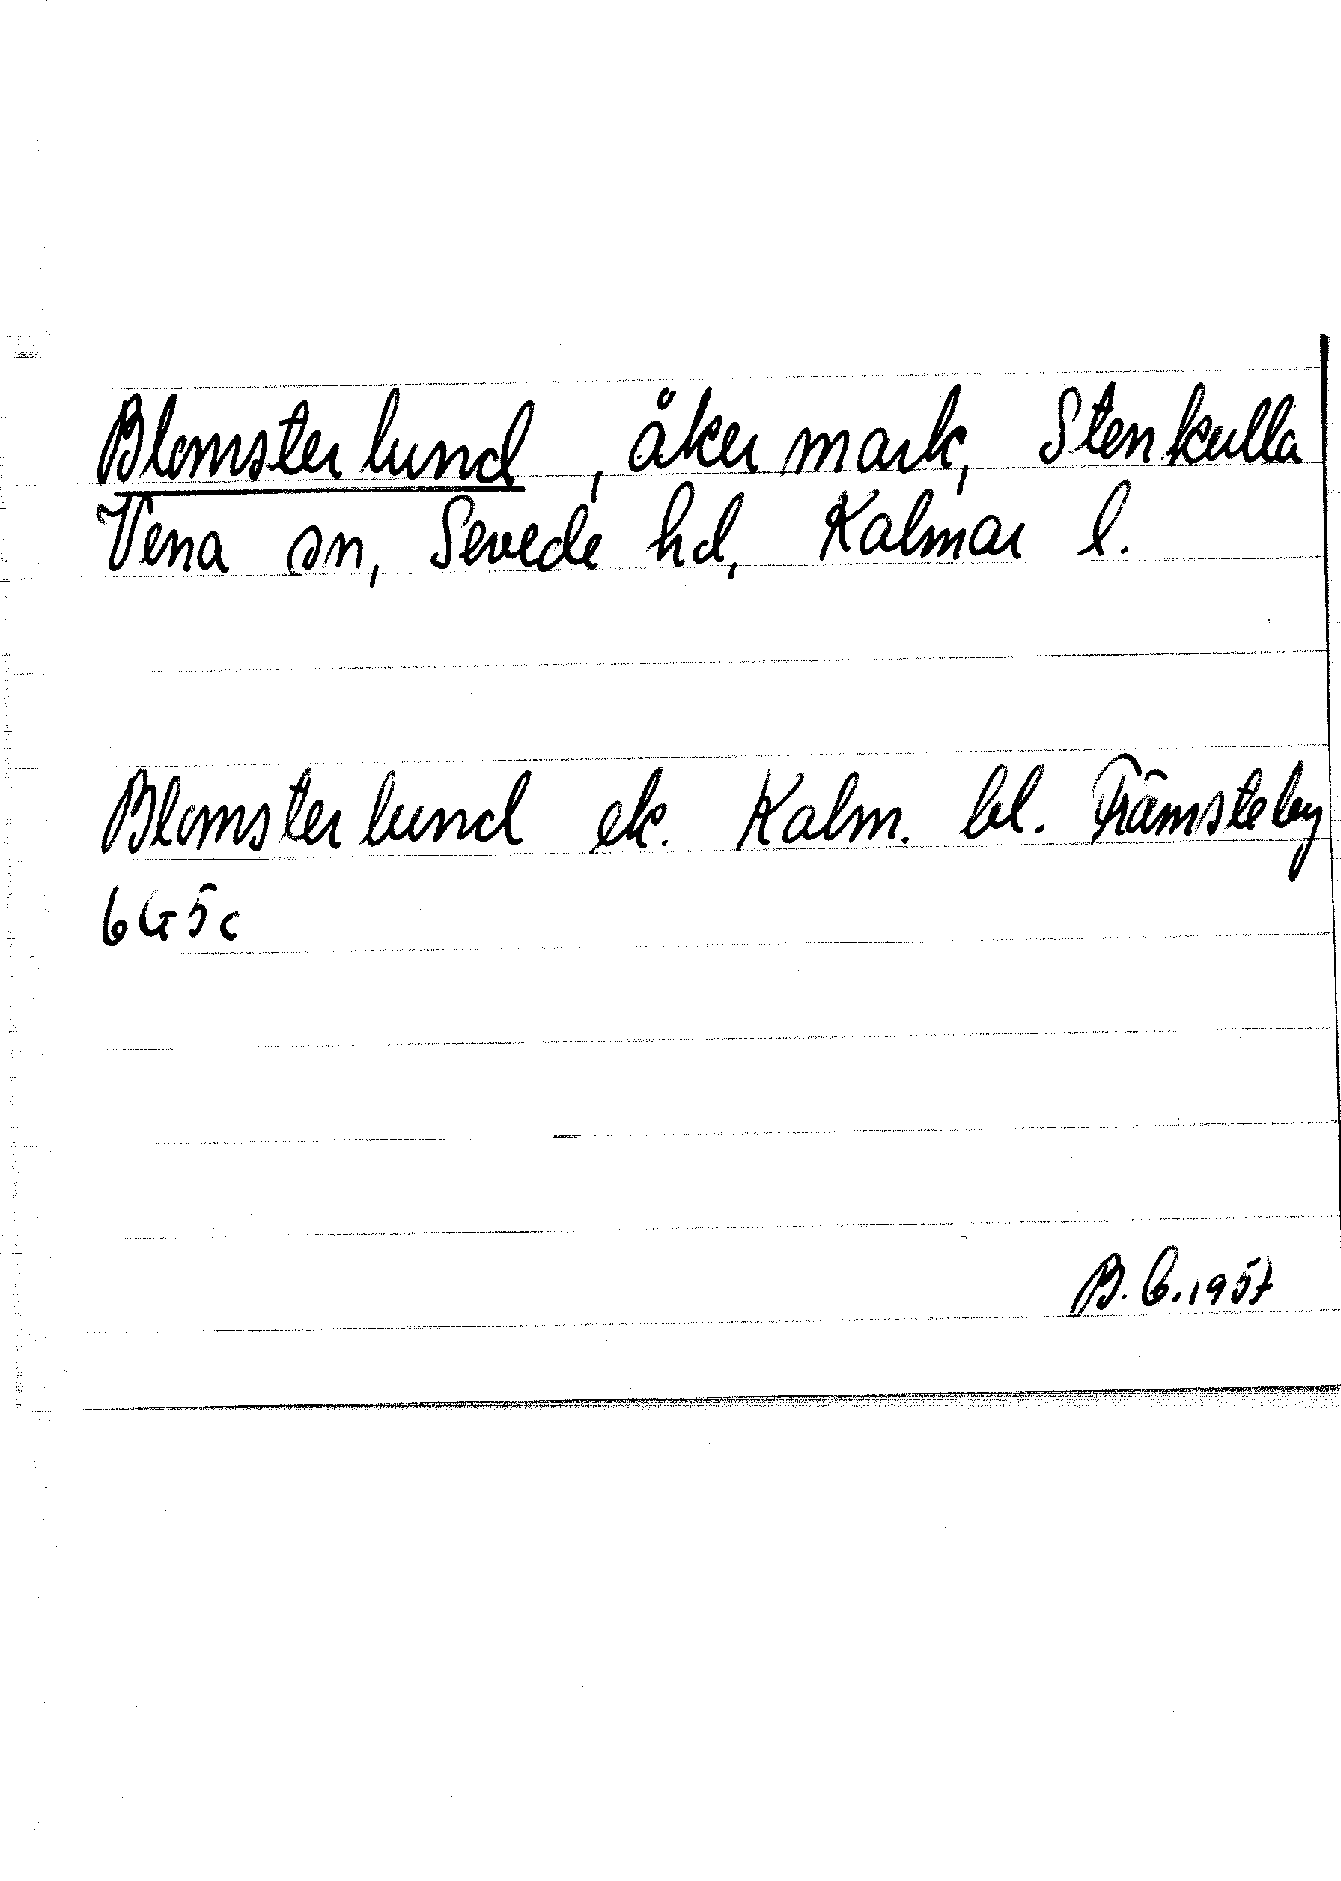 Blomsterlund, åkermark, Stenkulla
Vena sn, Sevede hd, Kalmar l.
Blomsterlund ek. Kalm. bl. Främsteby
6G5c
B. G. 1957